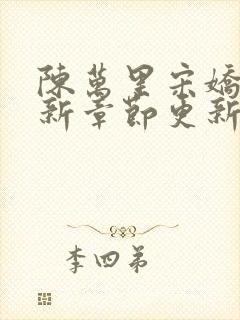 陳萬里宋嬌
新章節更新
李四弟